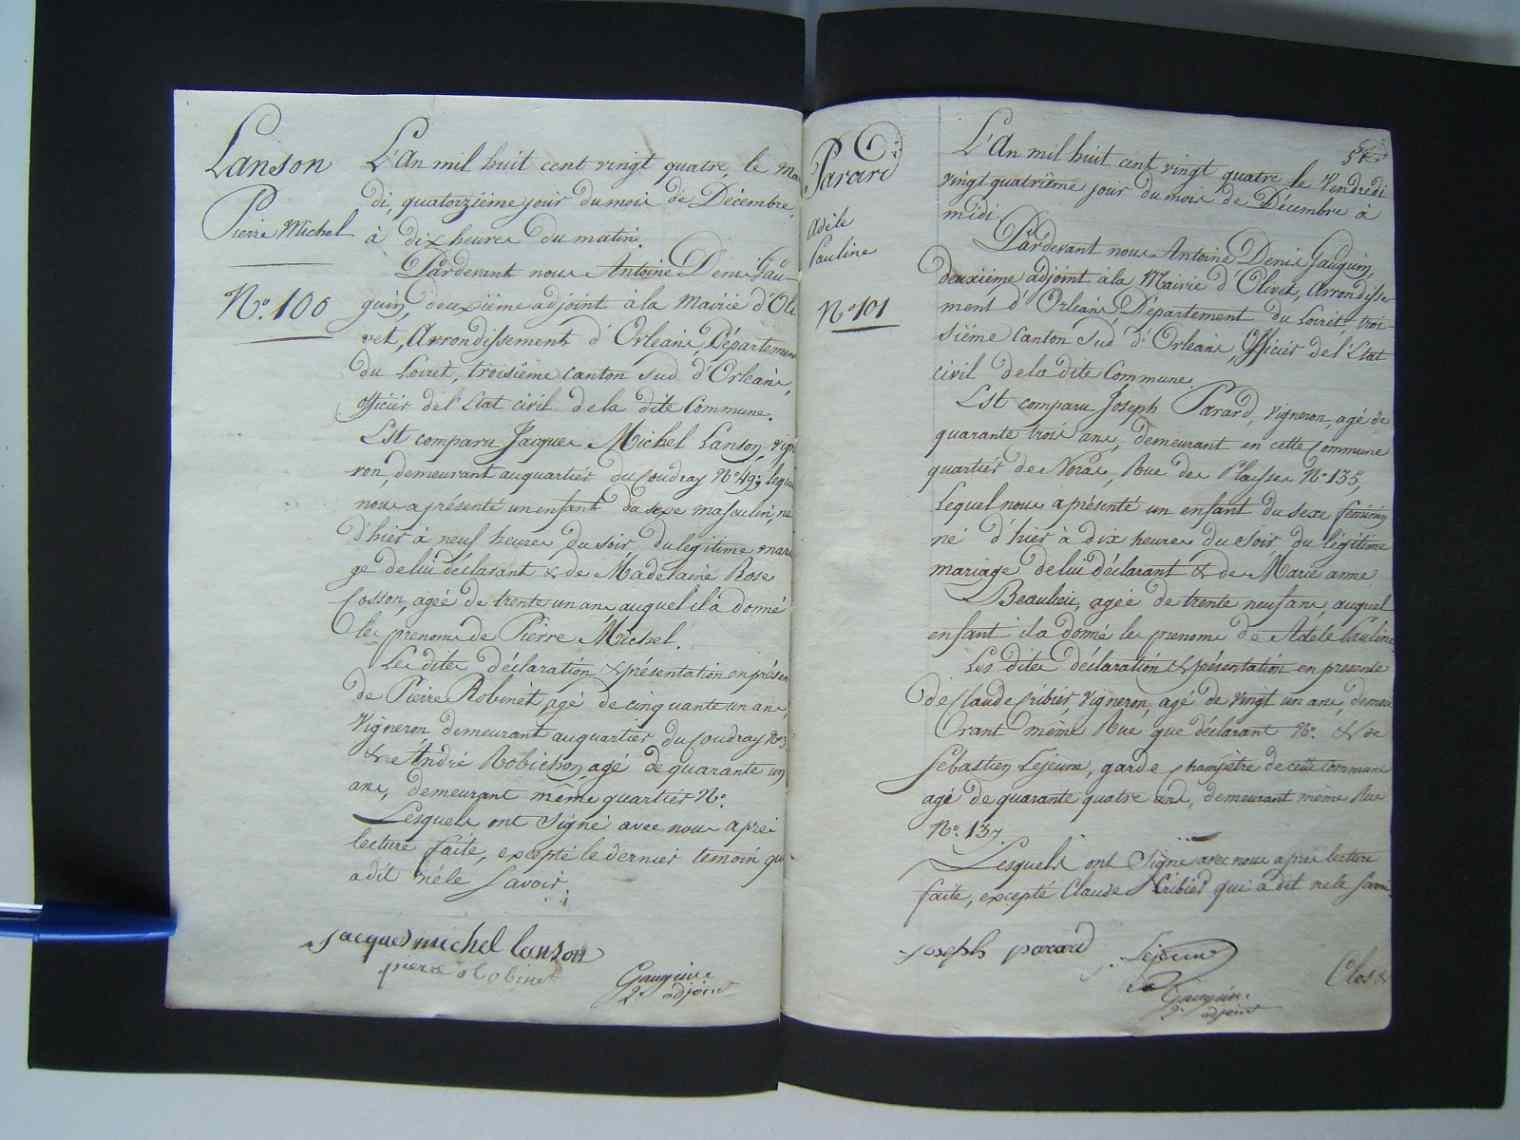 Lanson
Pierre Michel
N.º 100
L'An mil huit cent vingt quatre, le Mar
di, quatorzième jour du mois de Décembre,
à dix heures du matin.
Pardevant nous Antoine Denis Gau-
guin, deuxième adjoint à la Mairie d'Oli
vet, Arrondissement d'Orléans, Département
du Loiret, troisième canton Sud d'Orléans,
officier de l'Etat civil de la dite Commune.
Est comparu Jacques Michel Lanson, vign
ron, demeurant au quartier du Coudray Nº 49; lequel
nous a présenté un enfant du sexe masculin, né
d'hier à neuf heures du soir, du légitime maria
ge de lui déclarant & de Madelaine Rose
Cosson, agée de trente un ans, auquel il a donné
les prenoms de Pierre Michel.
Les dites déclaration & présentation en présen
de Pierre Robinet, agé de cinquante un ans,
Vigneron, demeurant au quartier du Coudray Nº
& de André Robichon, agé de quarante un
ans, demeurant même quartier Nº.
Lesquels ont Signé avec nous après
lecture faite, excepté le dernier temoin qui
a dit ne le savoir.
Jacques michel lanson
pierre robinet
Gauguin
2e adjoint
Parard
Adèle
Pauline
Nº 101
L'An mil huit cent vingt quatre le Vendredi
vingt quatrième jour du mois de Décembre à
midi.
Pardevant nous Antoine Denis Gauguin,
deuxième adjoint à la Mairie d'Olivet, Arrondisse
ment d'Orléans, Département du Loiret, troi-
sième Canton Sud d'Orléans, Officier de l'Etat
civil de la dite Commune.
Est comparu Joseph Parard, Vigneron, agé de
quarante trois ans, demeurant en cette Commune
quartier de Noras, Rue des Plaisses Nº 135,
Lequel nous a présenté un enfant du sexe féminin
né d'hier à dix heures du soir, du légitime
mariage de lui déclarant & de Marie anne
Beaulieu, agée de trente neuf ans, auquel
enfant il a donné les prenoms de Adèle Pauline
Les dites déclaration & présentation en presence
de Claude Cribier, Vigneron, agé de vingt un ans, demeu
rant même Rue que déclarant Nº. & de
Sébastien Lejeune, garde champêtre de cette commune
agé de quarante quatre ans, demeurant même Rue
Nº. 137.
Lesquels ont Signé avec nous apres lecture
faite, excepté Claude Cribier qui a dit ne le savoir
joseph parard
Lejeune
Gauguin
2e adjoint
Clos &